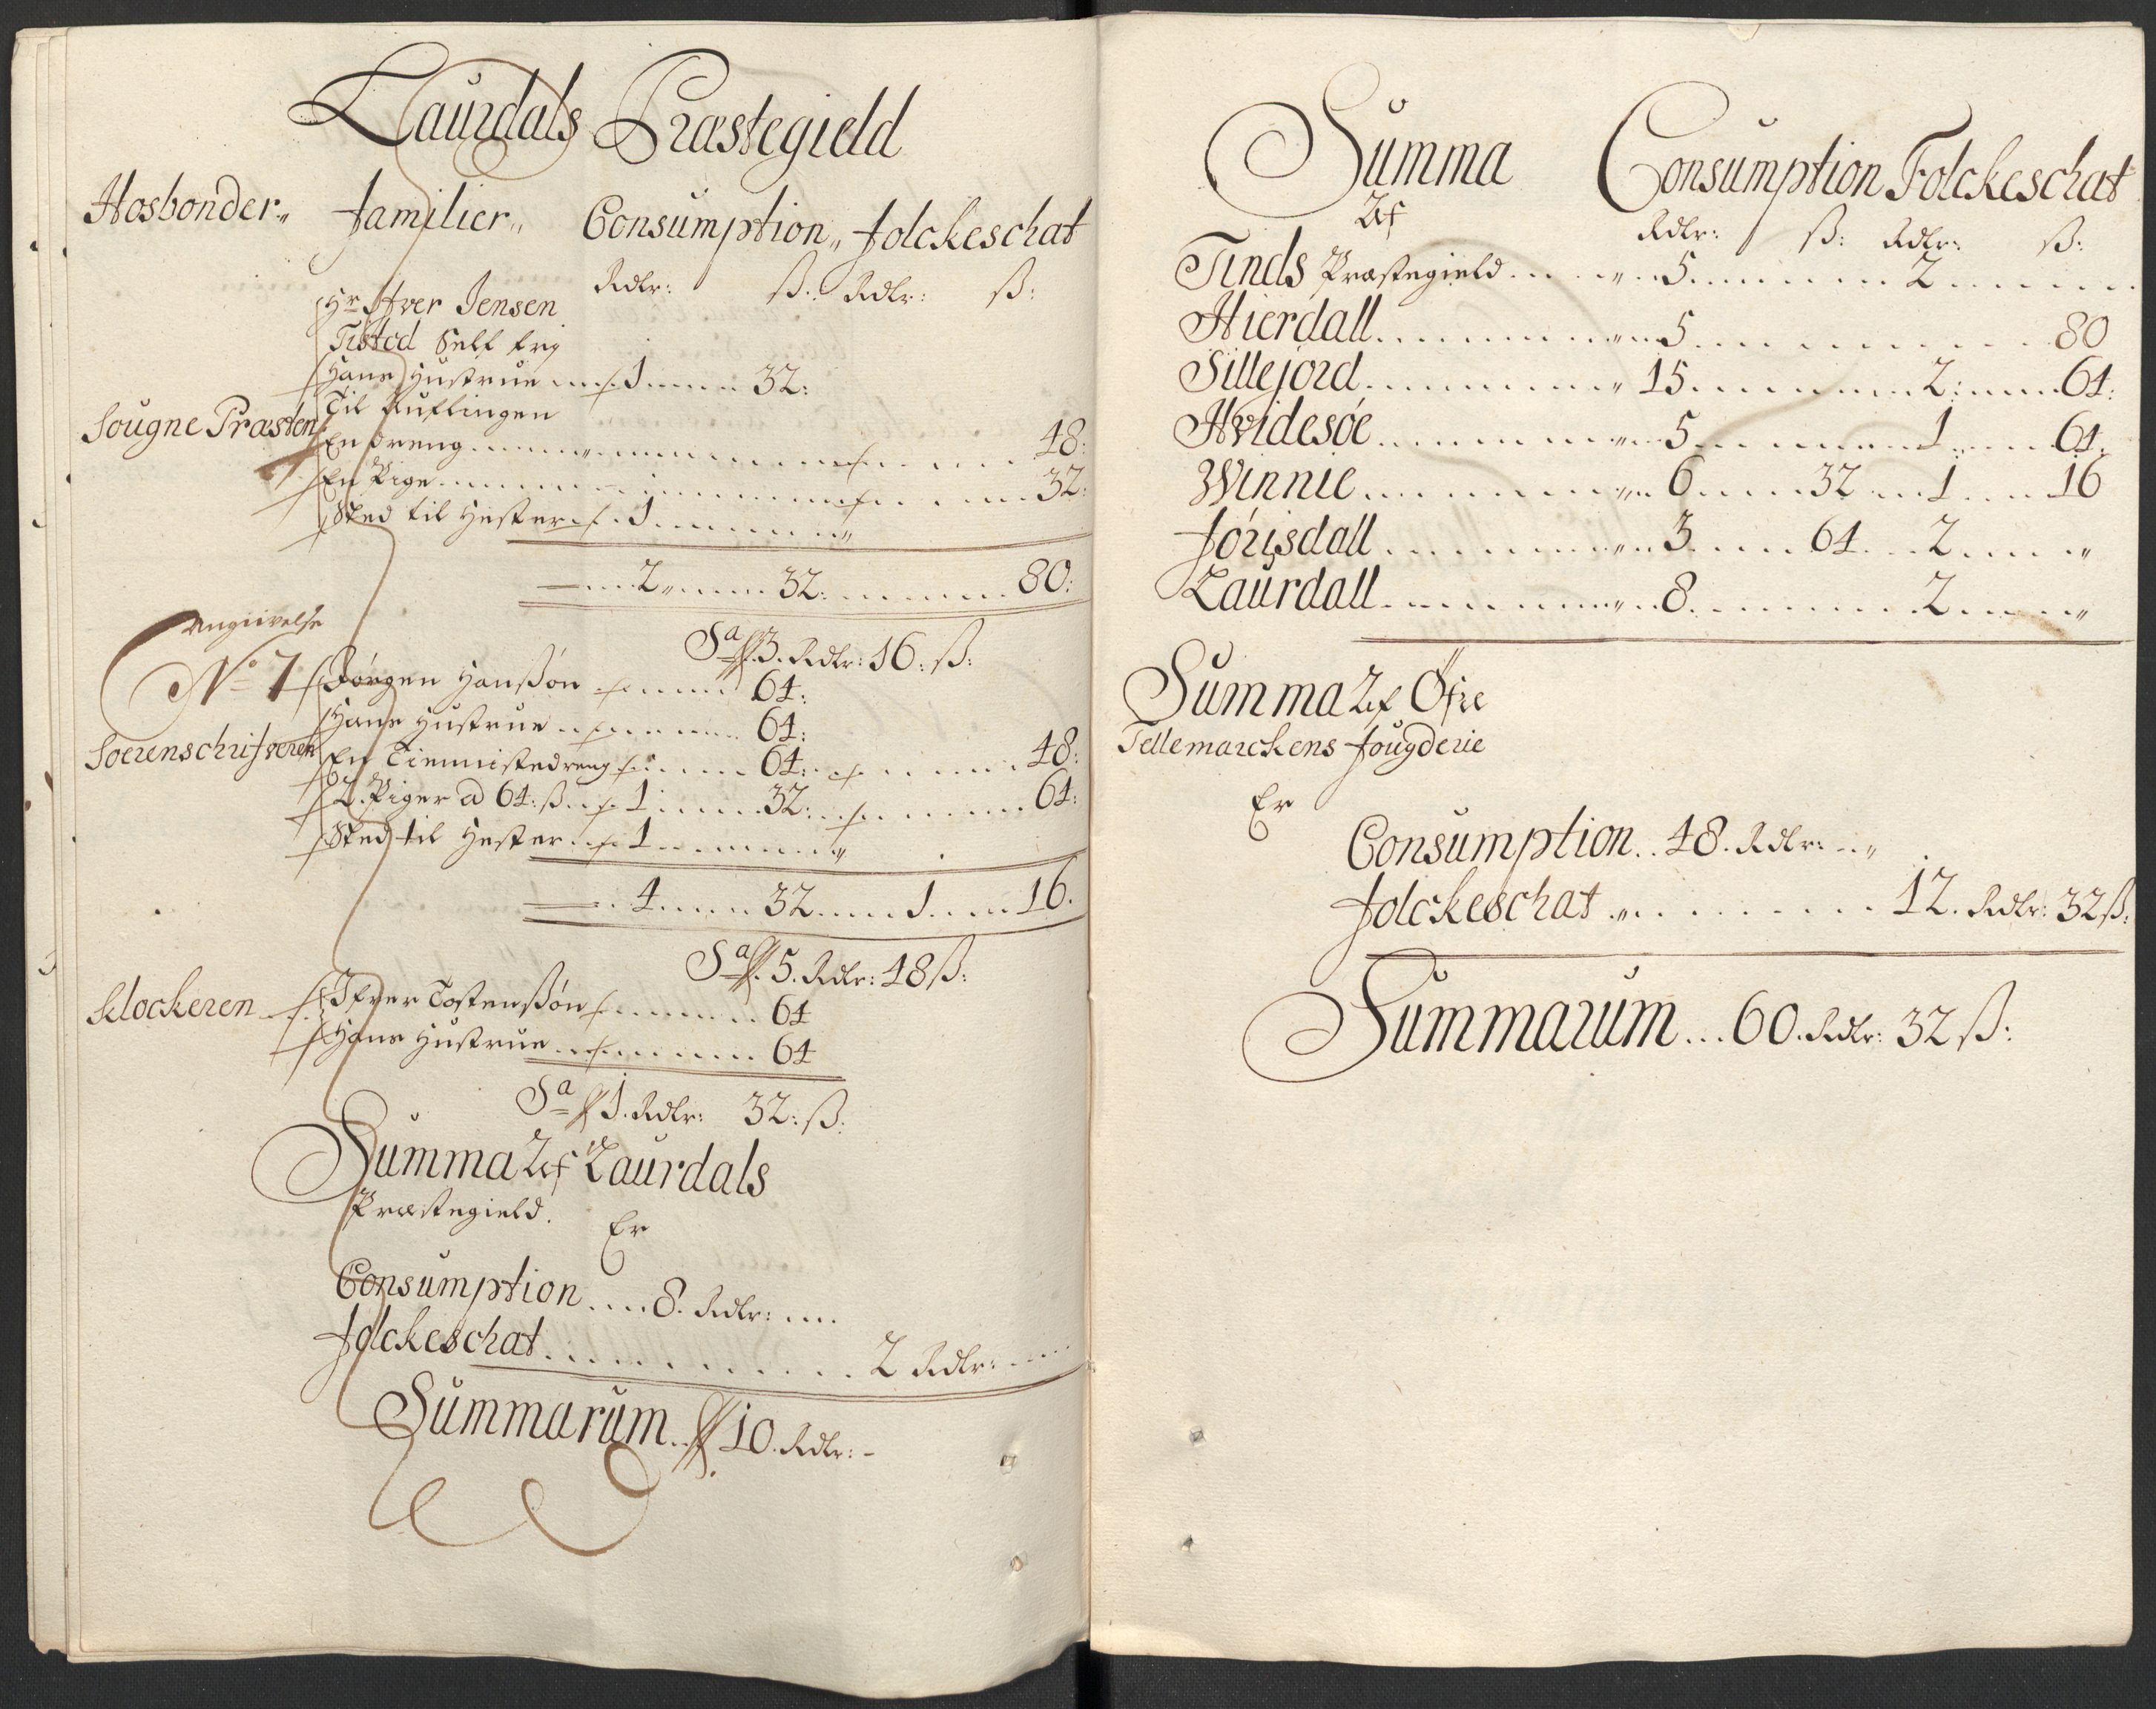 Laurdals Præstegield
Hosbonder„ Familier„ Consumption„ Folckeschat
Rdlr: ß: Rdlr: ß:
Hr Iver Jensen
Tisted Self frj
Hans Hustrue 1 32:
Til Kuflingen
Sougne Præsten
En dreng 48:
En Pige 32:
Sted til Hester 1 „
2 32: 80:
Sa 3. Rdlr: 16: ß:
Angiivelse
No 7 Jörgen Hanßön 64:
Hans Hustrue 64:
Soerenschrifveren En Tiennistedreng 64: 48:
2. Piger a 64: ß 1 32: 64:
Sted til Hester 1 „
4 32 1 16.
Sa 5. Rdlr: 48 ß:
Klockeren Ifver Tostenßön 64
Hans Hustrue 64
Sa 1. Rdlr: 32: ß:
Summa Af Laurdals
Præstegield.
Er
Consumption .... 8. Rdlr: ....
Folckeschat 2 Rdlr:
Summarum 10. Rdlr: -
Summa Consumption Folckeschat
Af
Rdlr: ß: Rdlr: ß:
Tinds Præstegield 5 2
Hierdall 5 80
Sillejord 15 2: 64:
Hvidesøe 5 1 64:
Winnie 6 32 1 16
Förisdall 3 64 2 „
Laurdall 8 2 „
Summa Af Øfre
Tellemarckens Fougderie
Er
Consumption .. 48. Rdlr: .. „
Folckeschat 12. Rdlr: 32 ß:
Summarum ... 60. Rdlr: 32 ß: